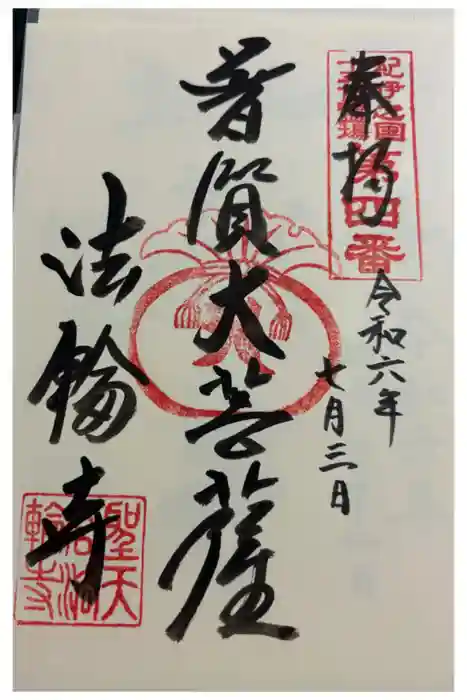 奉拝
紀伊之国
十三佛霊場
第四番
令和六年
七月三日
普賢大菩薩
法輪寺
聖天
宮法
輪寺